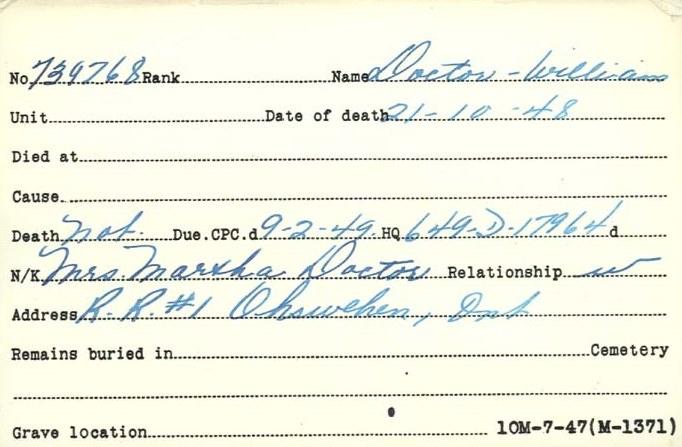 No. 739768 Rank Name Doctor - William
Unit Date of death 21-10-48
Died at
Cause
Death Not. Due. CPC. d 9-2-49 HQ 649-D-17964 d
N/K Mrs. Martha Doctor Relationship w
Address R.R. #1 Ohsweken, Ont
Remains buried in Cemetery
Grave location 10M-7-47(M-1371)